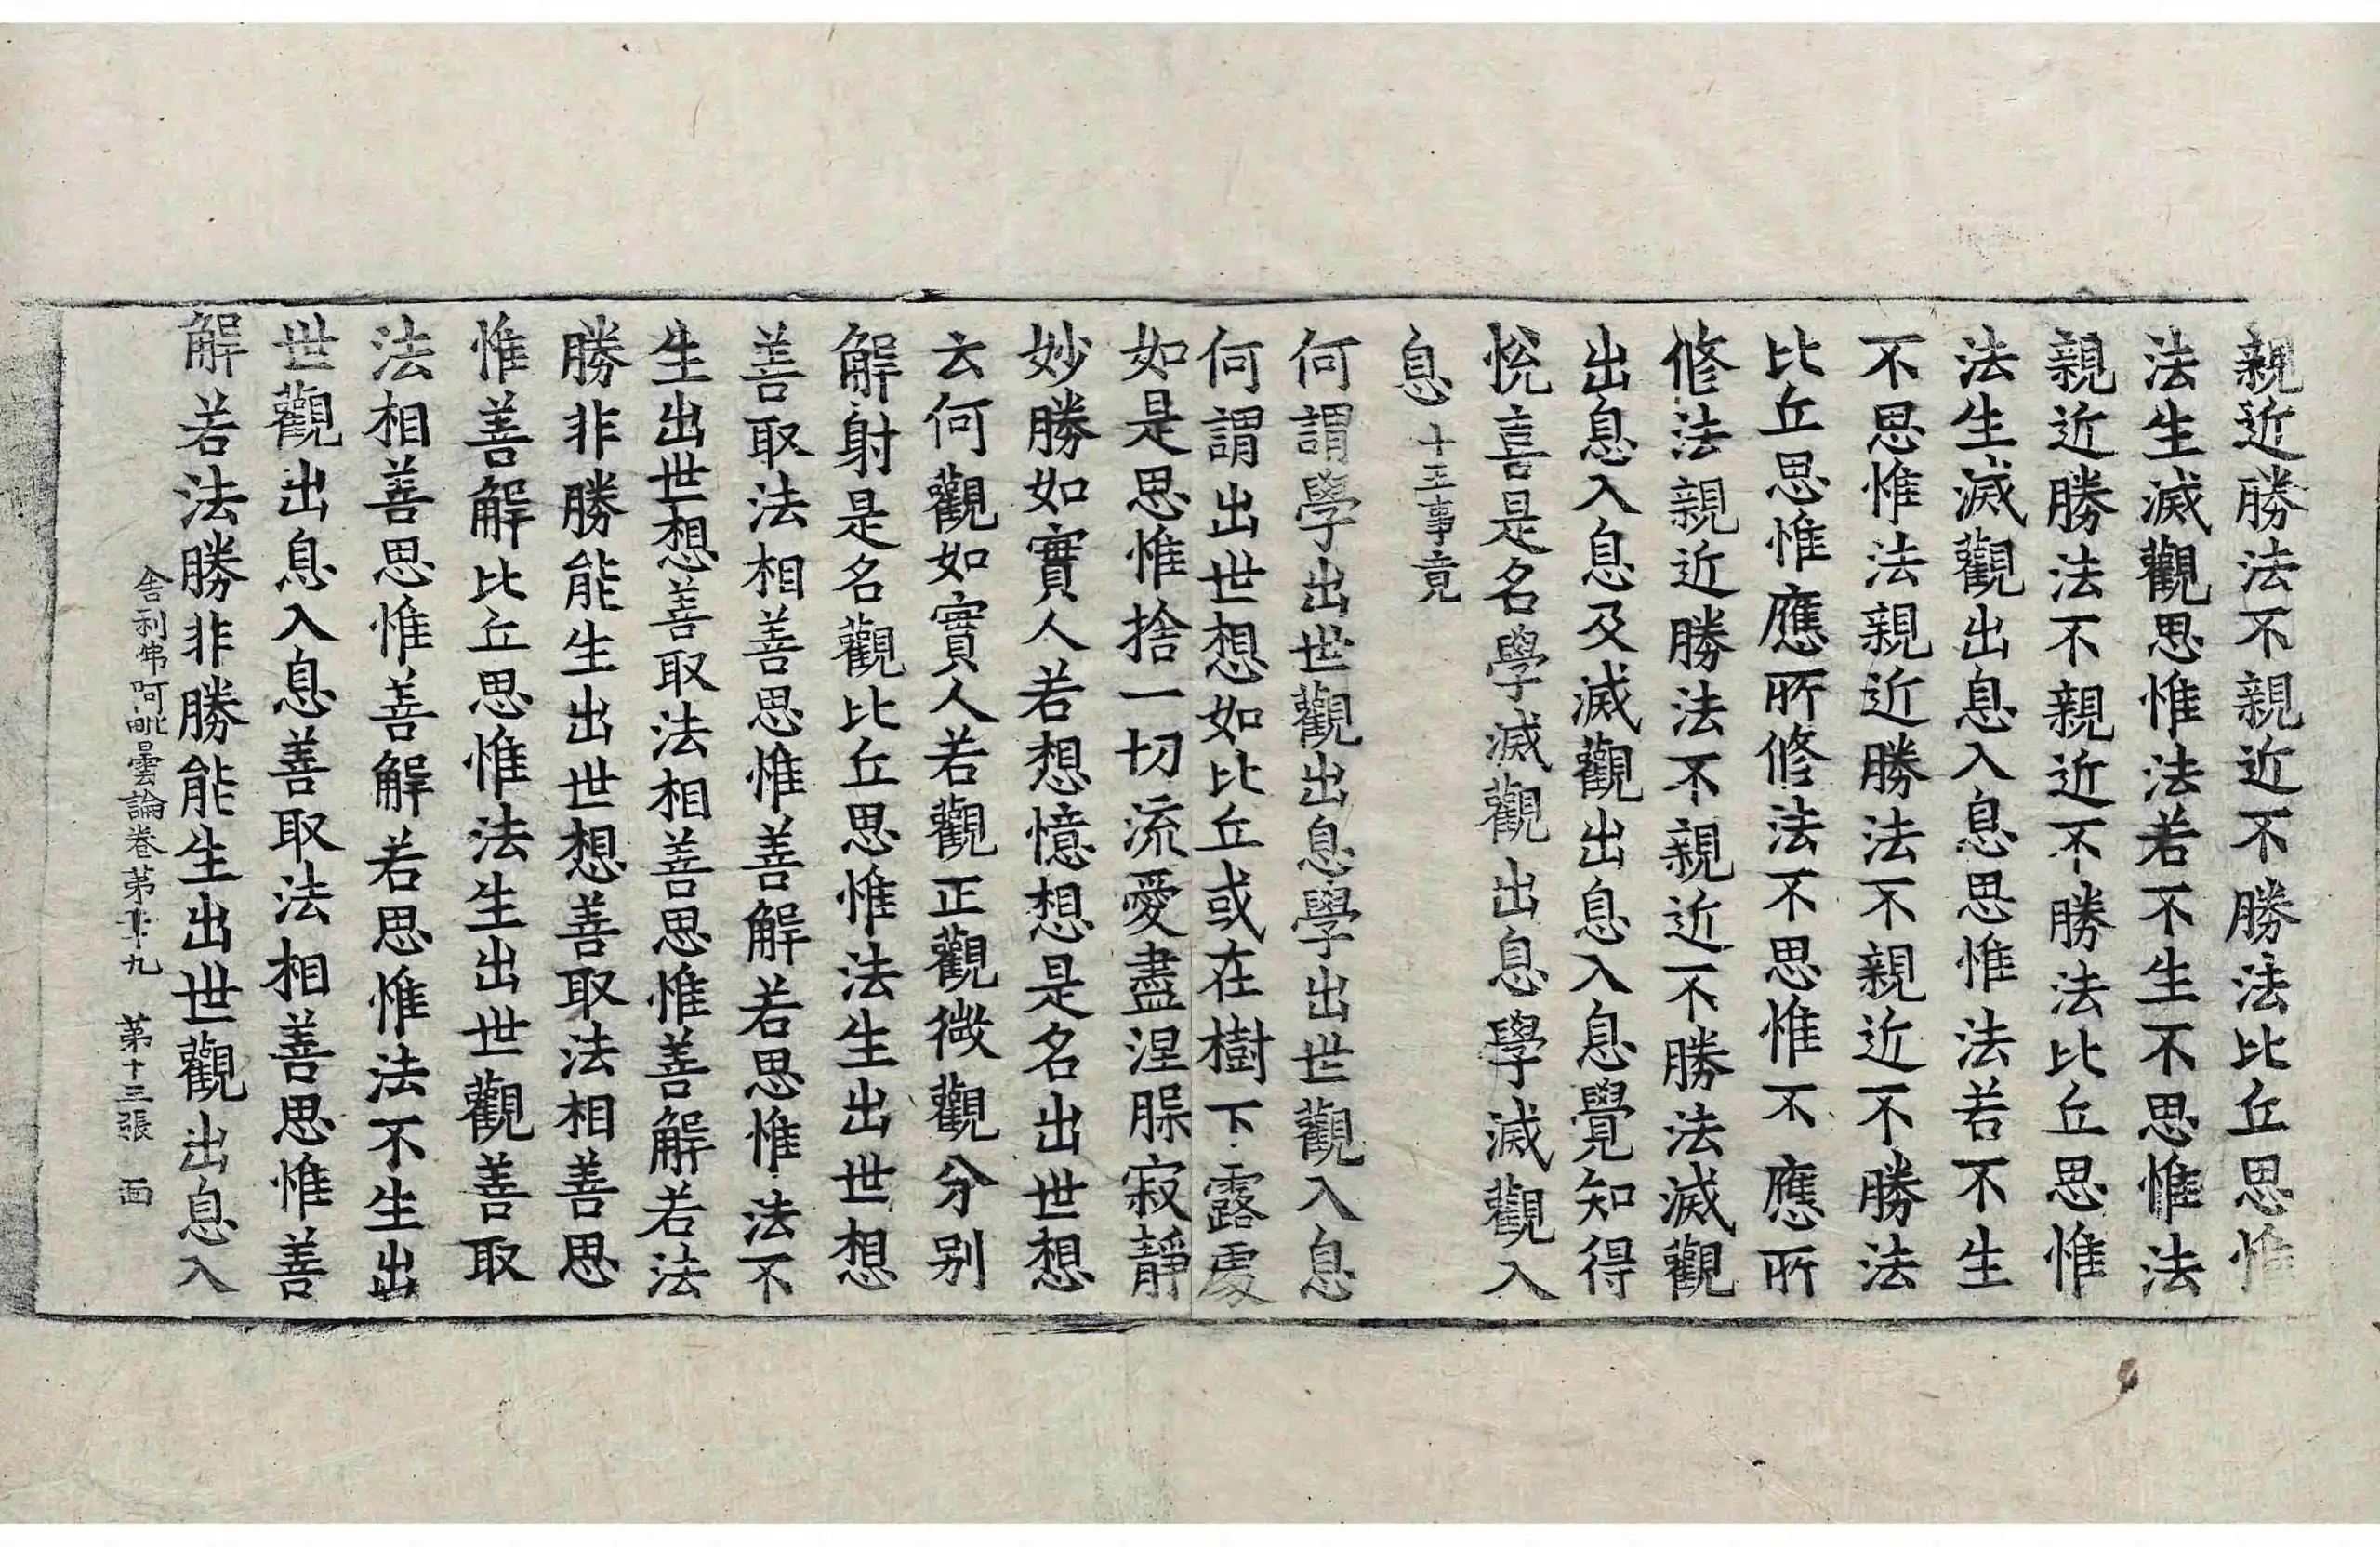 親近勝法不親近不勝法比丘思惟
法生滅觀思惟法若不生不思惟法
親近勝法不親近不勝法比丘思惟
法生滅觀出息入息思惟法若不生
不思惟法親近勝法不親近不勝法
比丘思惟應所修法不思惟不應所
修法親近勝法不親近不勝法滅觀
出息入息及滅觀出息入息覺知得
悅喜是名學滅觀出息學滅觀入
息十五事竟
何謂學出世觀出息學出世觀入息
何謂出世想如比丘或在樹下露處
如是思惟捨一切流愛盡涅𣵀寂靜
妙勝如實人若想憶想是名出世想
云何觀如實人若觀正觀微觀分别
解射是名觀比丘思惟法生出世想
善取法相善思惟善解若思惟法不
生出世想善取法相善思惟善解若法
勝非勝能生出世想善取法相善思
惟善解比丘思惟法生出世觀善取
法相善思惟善解若思惟法不生出
世觀出息入息善取法相善思惟善
解若法勝非勝能生出世觀出息入
舍利弗阿毗曇論卷第 十九 第十三張 面